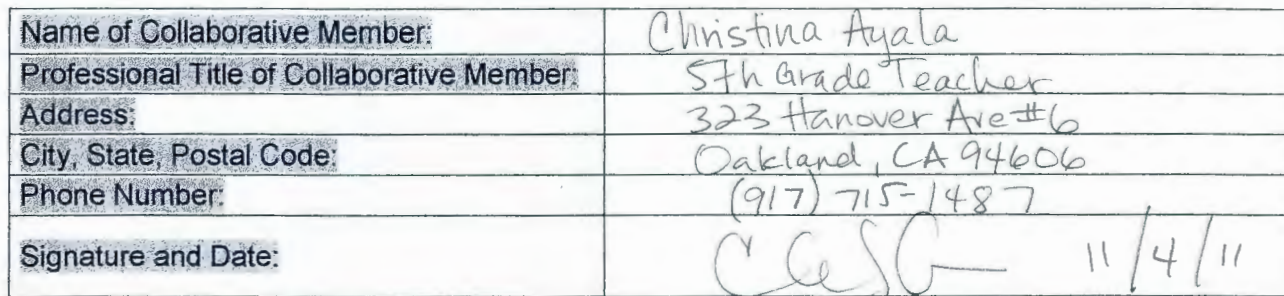 Name of Collaborative Member: Christina Ayala
Professional Title of Collaborative Member: 5th Grade Teacher
Address: 323 Hanover Ave #6
City, State, Postal Code: Oakland, CA 94606
Phone Number: (917) 715-1487
Signature and Date: 11/4/11